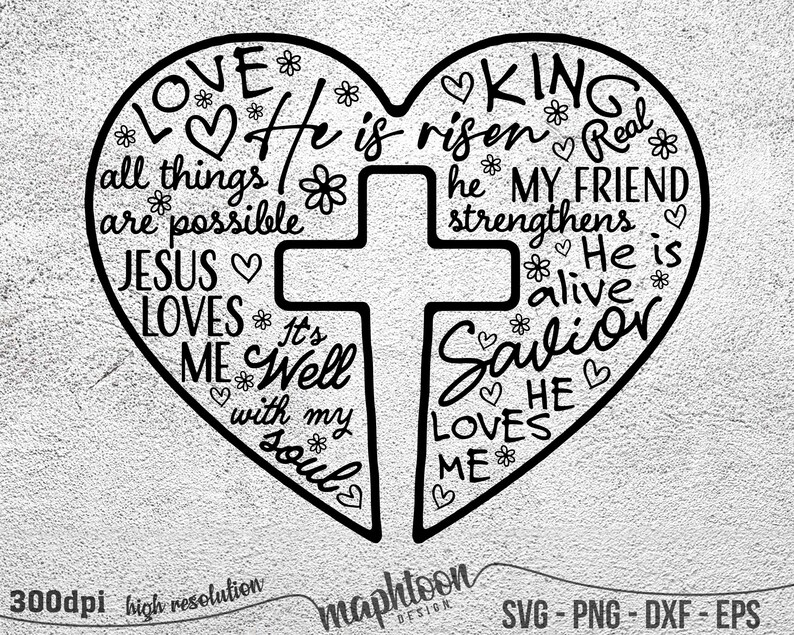 LOVE
KING
He is risen
Real
all things
are possible
he
MY FRIEND
strengthens
JESUS
LOVES
ME
He is
alive
It's
Well
with my
soul
Savior
HE
LOVES
ME
300dpi
high resolution
maphtoon
DESIGN
SVG - PNG - DXF - EPS